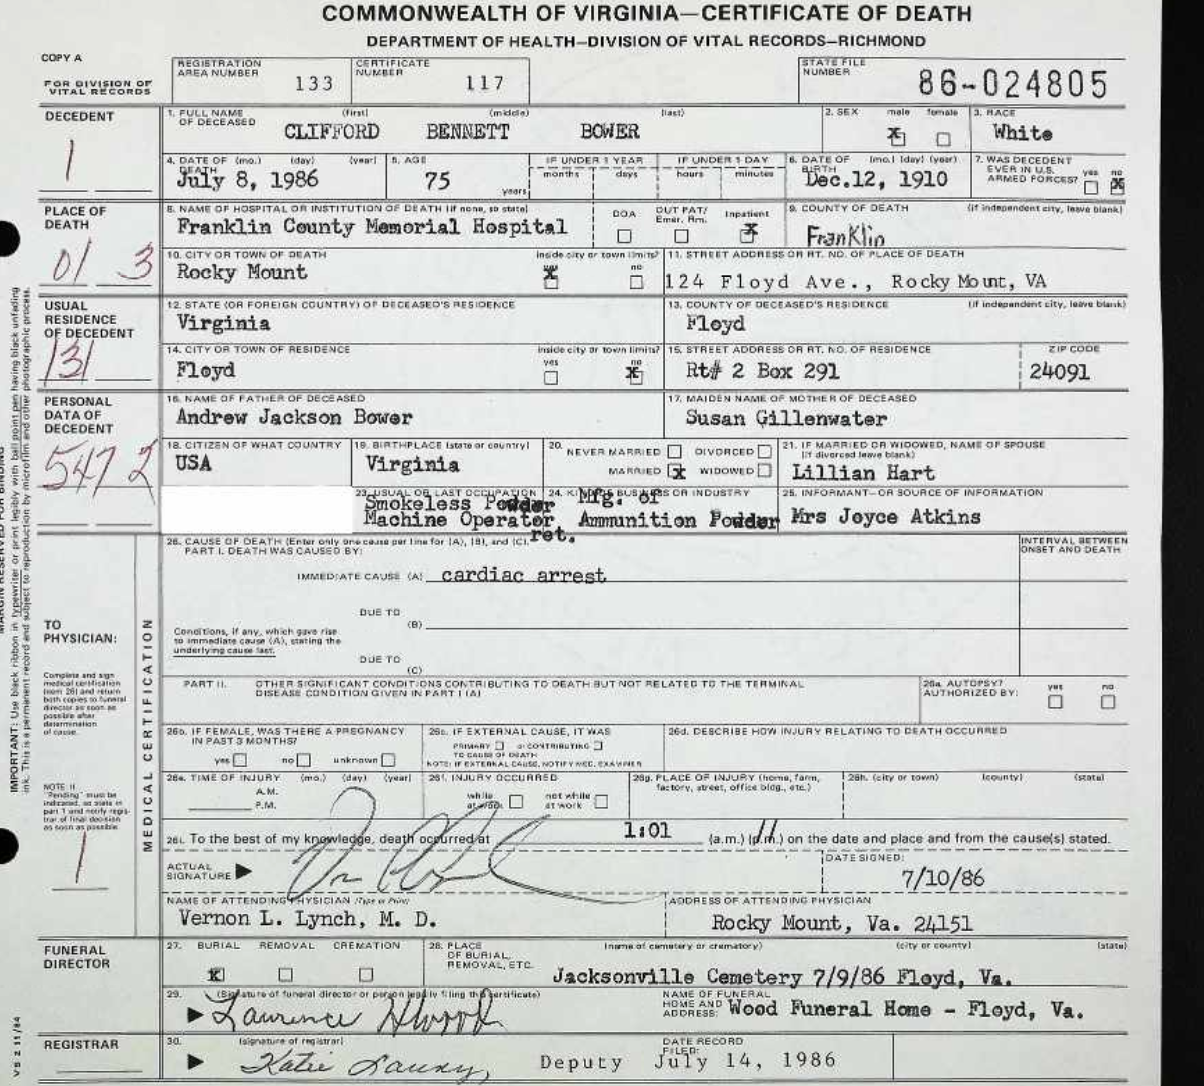 COMMONWEALTH OF VIRGINIA—CERTIFICATE OF DEATH
DEPARTMENT OF HEALTH—DIVISION OF VITAL RECORDS—RICHMOND
COPY A
FOR DIVISION OF VITAL RECORDS
REGISTRATION AREA NUMBER 133
CERTIFICATE NUMBER 117
STATE FILE NUMBER 86-024805
DECEDENT
1
1. FULL NAME OF DECEASED (first) (middle) (last)
CLIFFORD BENNETT BOWER
2. SEX male female
X
3. RACE
White
4. DATE OF DEATH (mo.) (day) (year)
July 8, 1986
5. AGE
75 years
IF UNDER 1 YEAR months days
IF UNDER 1 DAY hours minutes
6. DATE OF BIRTH (mo.) (day) (year)
Dec.12, 1910
7. WAS DECEDENT EVER IN U.S. ARMED FORCES? yes no
X
PLACE OF DEATH
01 3
8. NAME OF HOSPITAL OR INSTITUTION OF DEATH (if none, so state)
Franklin County Memorial Hospital
DOA OUT PAT/ Emer. Rm. Inpatient
X
9. COUNTY OF DEATH (if independent city, leave blank)
Franklin
10. CITY OR TOWN OF DEATH inside city or town limits? yes no
Rocky Mount X
11. STREET ADDRESS OR RT. NO. OF PLACE OF DEATH
124 Floyd Ave., Rocky Mount, VA
USUAL RESIDENCE OF DECEDENT
131
12. STATE (OR FOREIGN COUNTRY) OF DECEASED'S RESIDENCE
Virginia
13. COUNTY OF DECEASED'S RESIDENCE (if independent city, leave blank)
Floyd
14. CITY OR TOWN OF RESIDENCE inside city or town limits? yes no
Floyd X
15. STREET ADDRESS OR RT. NO. OF RESIDENCE ZIP CODE
Rt# 2 Box 291 24091
PERSONAL DATA OF DECEDENT
5472
16. NAME OF FATHER OF DECEASED
Andrew Jackson Bower
17. MAIDEN NAME OF MOTHER OF DECEASED
Susan Gillenwater
18. CITIZEN OF WHAT COUNTRY
USA
19. BIRTHPLACE (state or country)
Virginia
20. NEVER MARRIED DIVORCED
MARRIED X WIDOWED
21. IF MARRIED OR WIDOWED, NAME OF SPOUSE (if divorced leave blank)
Lillian Hart
23. USUAL OR LAST OCCUPATION
Smokeless Powder
Machine Operator
ret.
24. KIND OF BUSINESS OR INDUSTRY
Mfg. of
Ammunition Powder
25. INFORMANT—OR SOURCE OF INFORMATION
Mrs Joyce Atkins
MARGIN RESERVED FOR BINDING
IMPORTANT: Use black ribbon in typewriter or print legibly with ball point pen having black unfading
ink. This is a permanent record and subject to reproduction by microfilm and other photographic process.
VS 2 11/84
TO PHYSICIAN:
Complete and sign medical certification (item 26) and return both copies to funeral director as soon as possible after determination of cause.
NOTE: If "Pending" must be indicated, so state in part 1 and notify registrar of final decision as soon as possible
1
MEDICAL CERTIFICATION
26. CAUSE OF DEATH (Enter only one cause per line for (A), (B), and (C).
PART I. DEATH WAS CAUSED BY:
INTERVAL BETWEEN ONSET AND DEATH
IMMEDIATE CAUSE (A) cardiac arrest
DUE TO
(B)
Conditions, if any, which gave rise to immediate cause (A), stating the underlying cause last.
DUE TO
(C)
PART II. OTHER SIGNIFICANT CONDITIONS CONTRIBUTING TO DEATH BUT NOT RELATED TO THE TERMINAL DISEASE CONDITION GIVEN IN PART I (A)
26a. AUTOPSY? AUTHORIZED BY: yes no
26b. IF FEMALE, WAS THERE A PREGNANCY IN PAST 3 MONTHS?
yes no unknown
26c. IF EXTERNAL CAUSE, IT WAS
PRIMARY or CONTRIBUTING
TO CAUSE OF DEATH
NOTE: IF EXTERNAL CAUSE, NOTIFY MED. EXAMINER
26d. DESCRIBE HOW INJURY RELATING TO DEATH OCCURRED
26e. TIME OF INJURY (mo.) (day) (year)
A.M.
P.M.
26f. INJURY OCCURRED
while at work not while at work
26g. PLACE OF INJURY (home, farm, factory, street, office bldg., etc.)
26h. (city or town) (county) (state)
26i. To the best of my knowledge, death occurred at 1:01 (a.m.) (p.m.) on the date and place and from the cause(s) stated.
ACTUAL SIGNATURE
DATE SIGNED:
7/10/86
NAME OF ATTENDING PHYSICIAN (Type or Print)
Vernon L. Lynch, M. D.
ADDRESS OF ATTENDING PHYSICIAN
Rocky Mount, Va. 24151
FUNERAL DIRECTOR
27. BURIAL REMOVAL CREMATION
X
28. PLACE OF BURIAL, REMOVAL, ETC. (name of cemetery or crematory) (city or county) (state)
Jacksonville Cemetery 7/9/86 Floyd, Va.
29. (Signature of funeral director or person legally filing this certificate)
Laurence Wood
NAME OF FUNERAL HOME AND ADDRESS: Wood Funeral Home - Floyd, Va.
REGISTRAR
30. (signature of registrar)
Katie Deputy
DATE RECORD FILED:
July 14, 1986